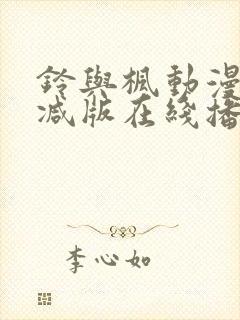 鈴與楓動漫
减版在綫播
李心如